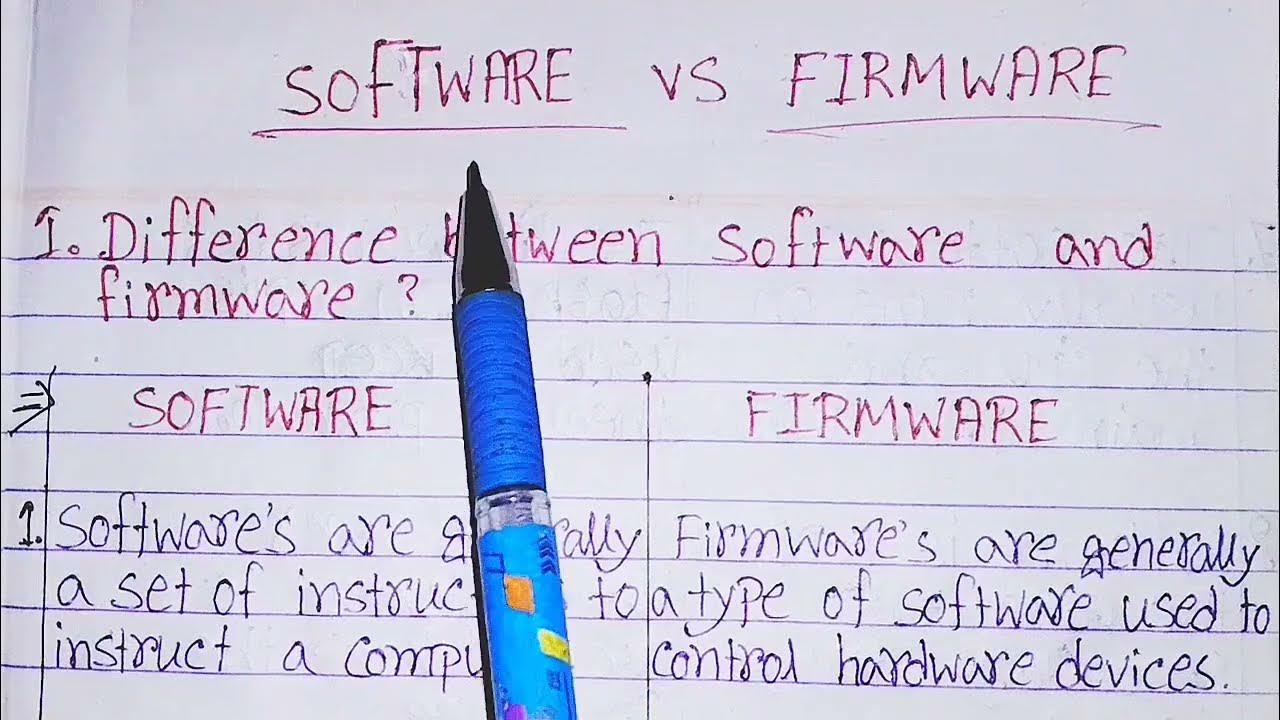 SOFTWARE VS FIRMWARE
1. Difference between Software and
firmware ?
⇒ SOFTWARE FIRMWARE
1. Software's are generally
a set of to
instruct a
Firmware's are generally
a type of software used to
control hardware devices.